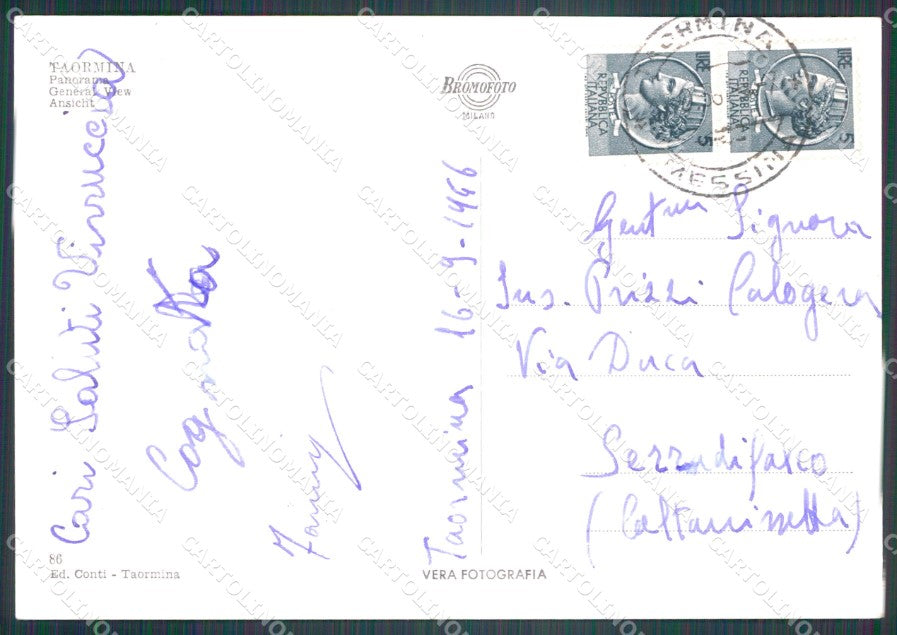 TAORMINA
Panorama
General View
Ansicht
BROMOFOTO
MILANO
LIRE 5
REPVBBLICA
ITALIANA
LIRE 5
REPVBBLICA
ITALIANA
TAORMINA
MESSINA
Cari Saluti Vinuccia
Cognata
Fanny
Taormina 16-9-1966
Gent.ma Signora
Ins. Prizzi Calogera
Via Duca
Serradifalco
(Caltanissetta)
86
Ed. Conti - Taormina
VERA FOTOGRAFIA
CARTOLINOMANIA